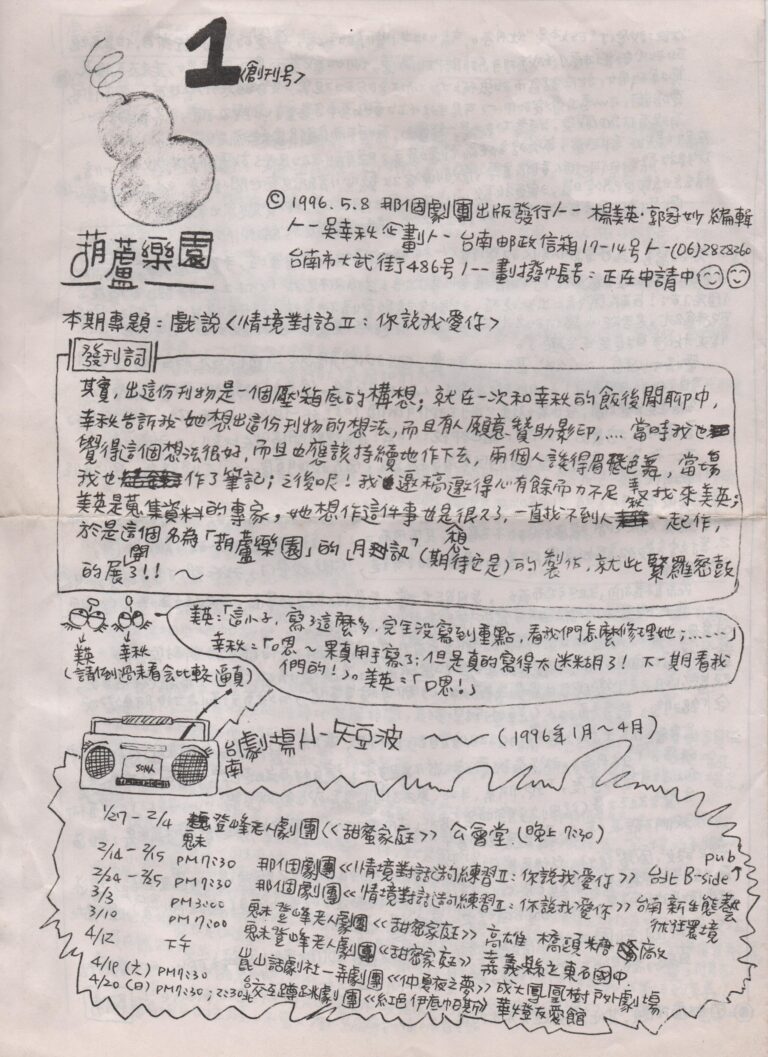 1
<創刊号>
葫蘆樂園
© 1996.5.8 那個劇團出版發行 楊美英·郭孟妙 編輯
吳幸秋 企劃 台南郵政信箱17-14号 (06)2828260
台南市大武街486号 劃撥帳号:正在申請中
本期專題:戲說<情境對話Ⅱ:你說我愛你>
發刊詞
其實,出這份刊物是一個壓箱底的構想;就在一次和幸秋的飯後閒聊中,
幸秋告訴我她想出這份刊物的想法,而且有人願意贊助影印,….當時我也
覺得這個想法很好,而且也應該持續地作下去,兩個人談得眉飛色舞,當場
我也作了筆記;之後呢!我邀稿邀得心有餘而力不足,找來美英;
美英是蒐集資料的專家,她想作這件事也是很久了,一直找不到人一起作,
於是這個名為「葫蘆樂園」的「月訊」(期待它是)的構想製作,就此緊鑼密鼓
的展開了!! ～
美英 幸秋
(請倒過來看會比較逼真)
美英:「這小子,寫了這麼多,完全沒寫到重點,看我們怎麼修理她;……」
幸秋=「嗯～果真用手寫了;但是真的寫得太迷糊了!下一期看我
們的!」。美英=「嗯!」
SONA
台南劇場小短波 ～～ (1996年1月～4月)
1/27-2/4 魅登峰老人劇團《甜蜜家庭》 公會堂 (晚上7:30)
2/14-2/15 PM7:30 那個劇團《情境對話的練習Ⅱ:你說我愛你》 台北B-side pub
2/24-2/25 PM7:30 那個劇團《情境對話的練習Ⅱ:你說我愛你》 台南新生態藝術環境
3/3 PM3:00 魅登峰老人劇團《甜蜜家庭》 高雄 橋頭糖廠
3/10 PM7:00 魅登峰老人劇團《甜蜜家庭》 嘉義縣立東石國中
4/12 下午 崑山話劇社一弄劇團《仲夏夜之夢》 成大鳳凰樹戶外劇場
4/19(六) PM7:30
4/20(日) PM7:30;2:30 台北 劇團《紅皂伊底帕斯》 華燈友愛館